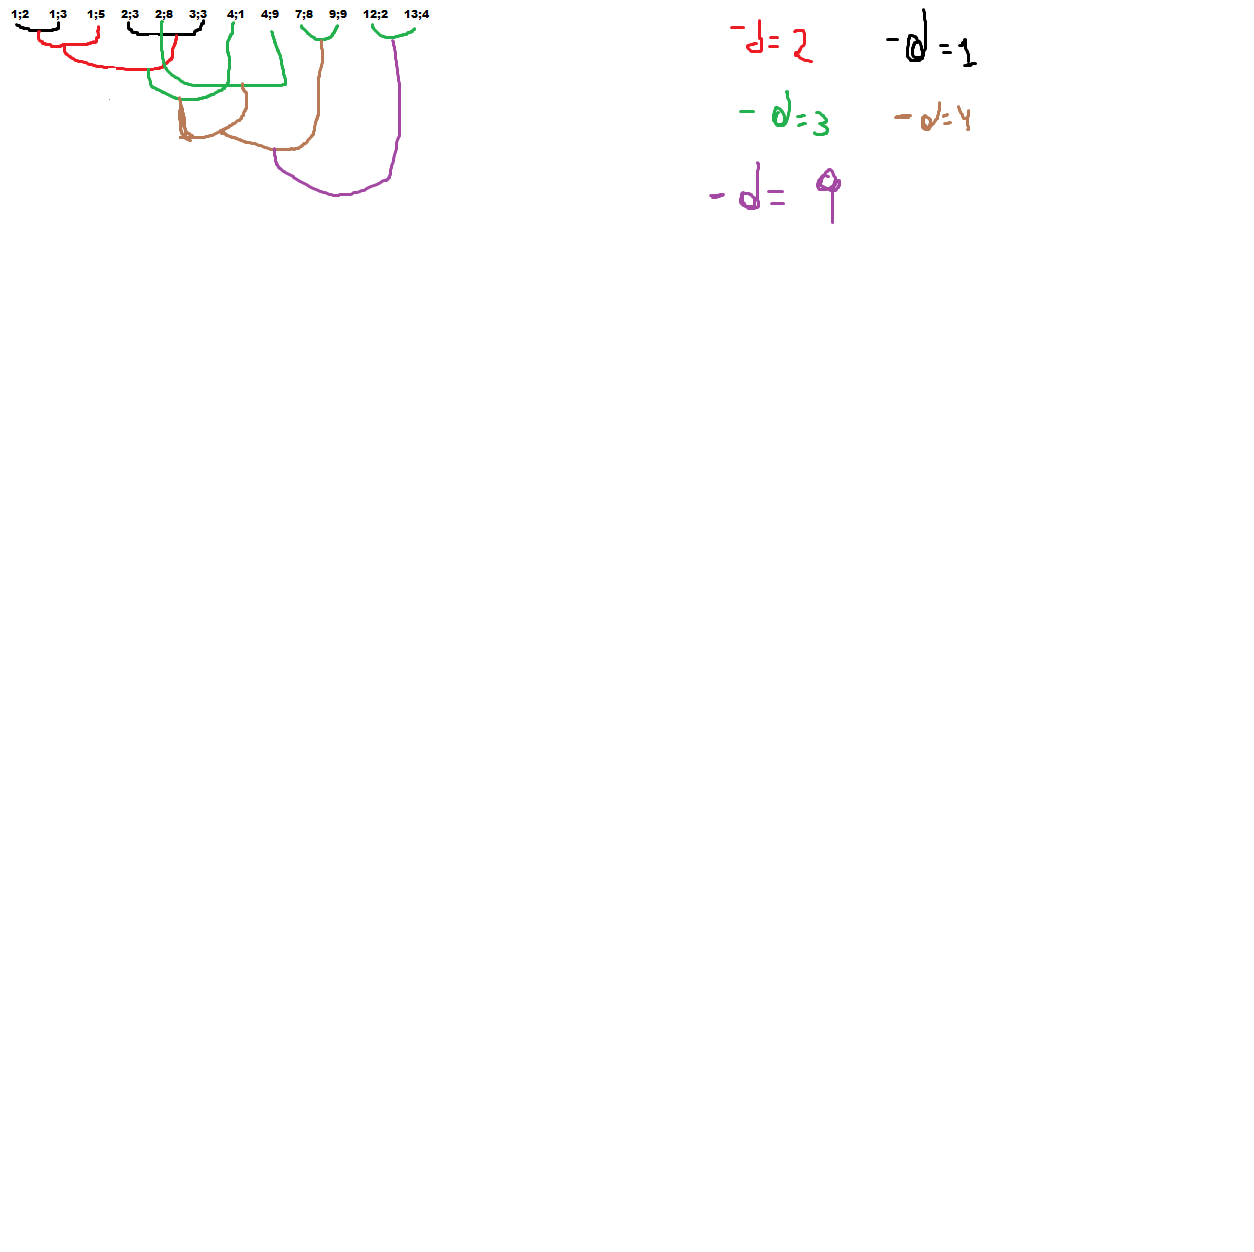 1;2 1;3 1;5 2;3 2;8 3;3 4;1 4;9 7;8 9;9 12;2 13;4
- d = 2 - d = 1
- d = 3 - d = 4
- d = 9